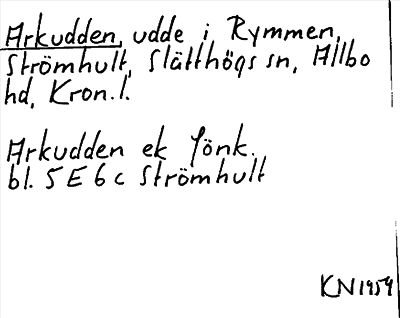 Arkudden, udde i Rymmen,
Strömhult, Slätthögs sn, Allbo
hd, Kron.l.
Arkudden ek Jönk.
bl. 5 E 6 c Strömhult
KN1959